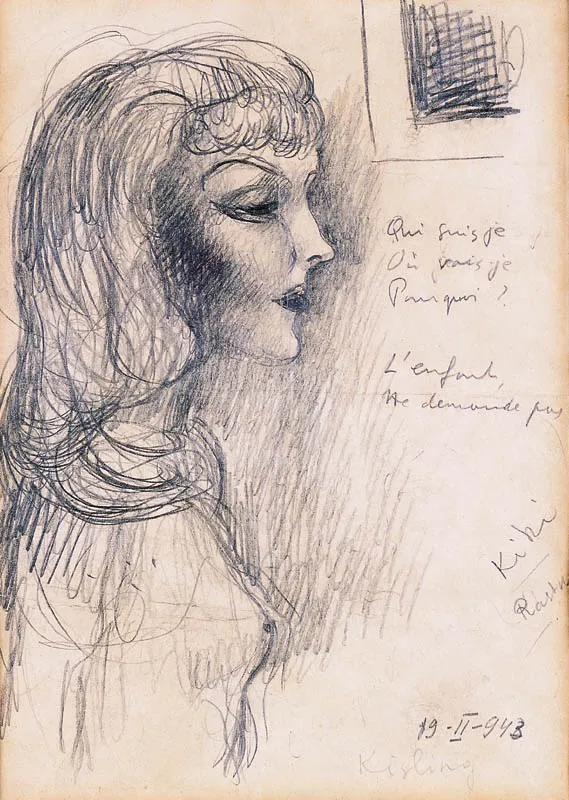 Qui suis je
Où vais je
Pourquoi ?
L'enfant,
Ne demande pas
Kiki
19-II-943
Kisling